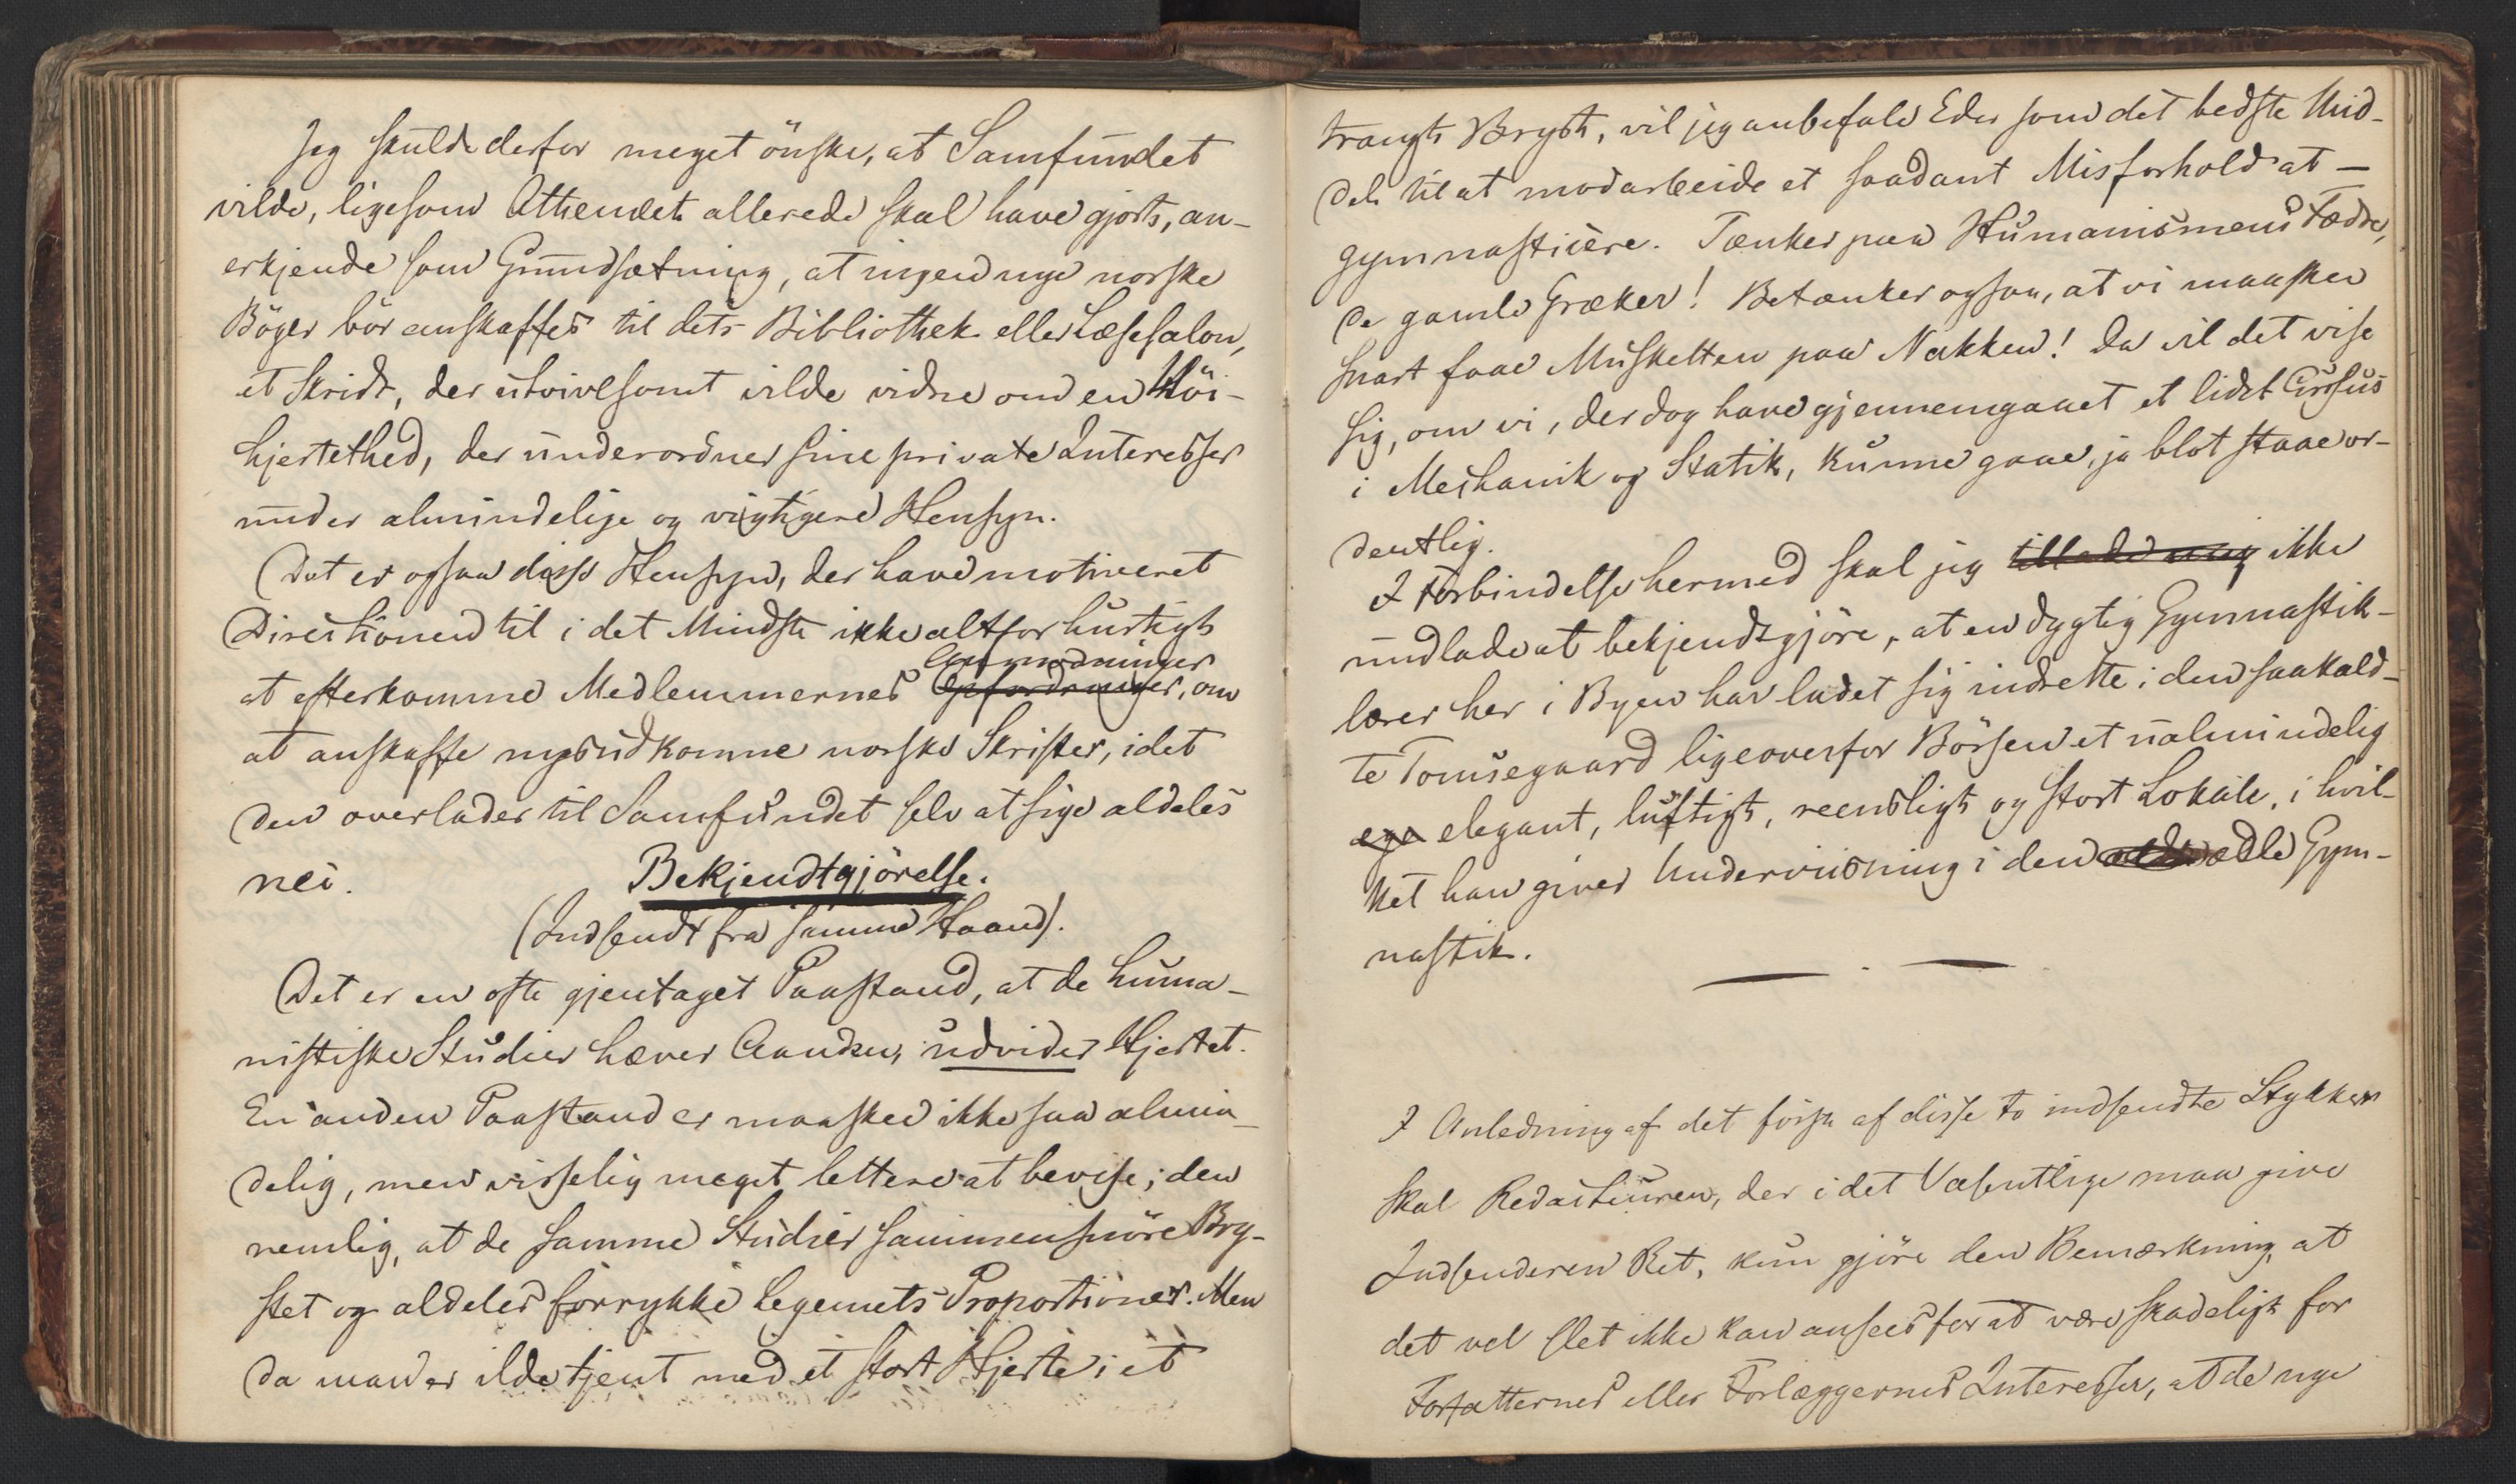 Jeg skulde derfor meget önske, at Samfundet
vilde, ligesom Athenæet allerede skal have gjort, an-
erkjende som Grundsætning, at ingen nye norske
Böger bör anskaffes til dets Bibliothek eller Læsesalon,
et Skridt, der utvivlsomt vilde vidne om en Höi-
hjertethed, der underordner sine private Interesser
under almindelige og vigtigere Hensyn.
Det er ogsaa disse Hensyn, der have motiveret
Directionen til i det Mindste ikke altfor hurtigt
Anmodninger
at efterkomme Medlemmernes Opfordringer, om
at anskaffe nysudkomne norske Skrifter, idet
den overlader til Samfundet selv at sige aldeles
nei.
Bekjendtgjörelse.
(Indsendt fra samme Haand).
Det er en ofte gjentaget Paastand, at de huma-
nistiske Studier hæver Aanden, udvider Hjertet.
En anden Paastand er maaskee ikke saa almin-
delig, men visselig meget lettere at bevise; den
nemlig, at de samme Studier sammensnöre Bry-
stet og aldeles forrykke Legemets Proportioner. Men
da man er ilde tjent med et stort Hjerte i et
trangt Bryst, vil jeg anbefale Eder som det bedste Mid-
del til at modarbeide et saadant Misforhold at –
gymnasticere. Tænker paa Humanismens Fædre,
de gamle Græker! Betænker ogsaa, at vi maaskee
snart faae Musketten paa Nakken! Da vil det vise
sig, om vi, der dog have gjennemgaaet et lidet Cursus
i Mechanik og Statik, kunne gaae, ja blot staae or-
dentlig.
I Forbindelse hermed skal jeg tillade mig ikke
undlade at bekjendtgjöre, at en dygtig Gymnastik-
lærer her i Byen har ladet sig indrette i den saakald-
te Tomsegaard ligeoverfor Börsen et ualmindelig
ege elegant, luftigt, reensligt og stort Lokale, i hvil-
ket han giver Underviisning i den ædle Gym-
nastik.
I Anledning af det förste af disse to indsendte Stykker
skal Redacteuren, der i det Væsentlige maa give
Indsenderen Ret, kun gjöre den Bemærkning, at
det vel slet ikke kan ansees for at være skadeligt for
Forfatternes eller Forlæggernes Interesser, at de nye